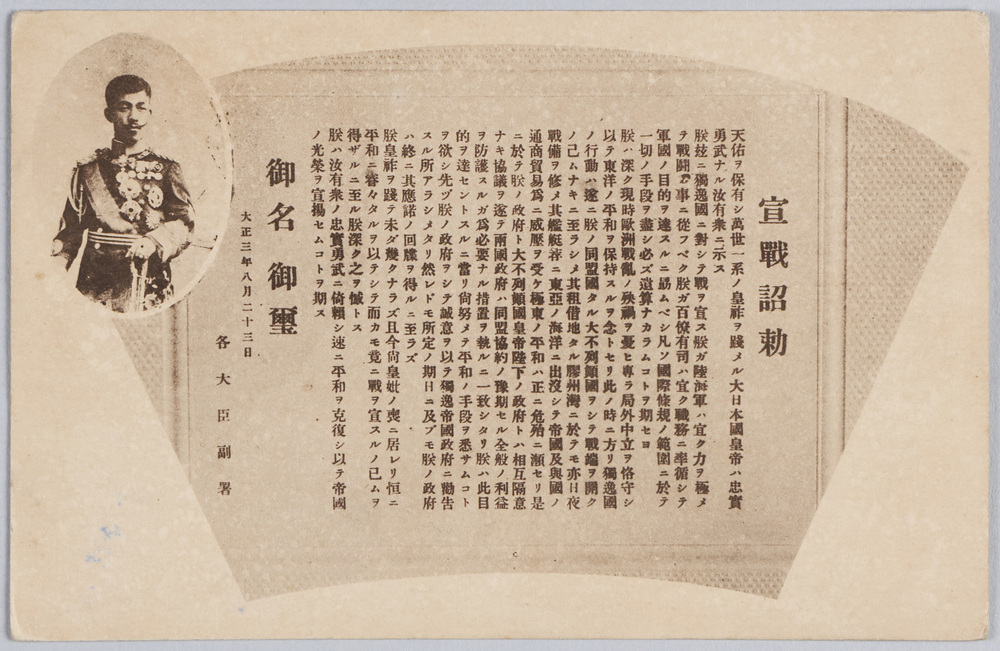 宣戰詔勅
天佑ヲ保有シ萬世一系ノ皇祚ヲ踐メル大日本國皇帝ハ忠實
勇武ナル汝有衆ニ示ス
朕玆ニ獨逸國ニ對シテ戰ヲ宣ス朕ガ陸海軍ハ宜ク力ヲ極メ
テ戰鬪ノ事ニ從フベク朕ガ百僚有司ハ宜ク職務ニ率循シテ
軍國ノ目的ヲ達スルニ勗ムベシ凡ソ國際條規ノ範圍ニ於テ
一切ノ手段ヲ盡シ必ズ遺算ナカラムコトヲ期セヨ
朕ハ深ク現時歐洲戰亂ノ殃禍ヲ憂ヒ專ラ局外中立ヲ恪守シ
以テ東洋ノ平和ヲ保持スルヲ念トセリ此ノ時ニ方リ獨逸國
ノ行動ハ遂ニ朕ノ同盟國タル大不列顚國ヲシテ戰端ヲ開ク
ノ已ムナキニ至ラシメ其租借地タル膠州灣ニ於テモ亦日夜
戰備ヲ修メ其艦艇荐ニ東亞ノ海洋ニ出沒シテ帝國及與國ノ
通商貿易爲ニ威壓ヲ受ケ極東ノ平和ハ正ニ危殆ニ瀕セリ是
ニ於テ朕ノ政府ト大不列顚國皇帝陛下ノ政府トハ相互隔意
ナキ協議ヲ遂テ兩國政府ハ同盟協約ノ豫期セル全般ノ利益
ヲ防護スルガ爲必要ナル措置ヲ執ルニ一致シタリ朕ハ此目
的ヲ達セントスルニ當リ尙努メテ平和ノ手段ヲ悉サムコト
ヲ欲シ先ヅ朕ノ政府ヲシテ誠意ヲ以テ獨逸帝國政府ニ勸告
スル所アラシメタリ然レドモ所定ノ期日ニ及ブモ朕ノ政府
ハ終ニ其應諾ノ回牒ヲ得ルニ至ラズ
朕皇祚ヲ踐テ未ダ幾クナラズ且今尙皇妣ノ喪ニ居レリ恒ニ
平和ニ眷々タルヲ以テシテ而カモ竟ニ戰ヲ宣スルノ已ムヲ
得ザルニ至ル朕深ク之ヲ憾トス
朕ハ汝有衆ノ忠實勇武ニ倚賴シ速ニ平和ヲ克復シ以テ帝國
ノ光榮ヲ宣揚セムコトヲ期ス
御名御璽
大正三年八月二十三日
各大臣副署